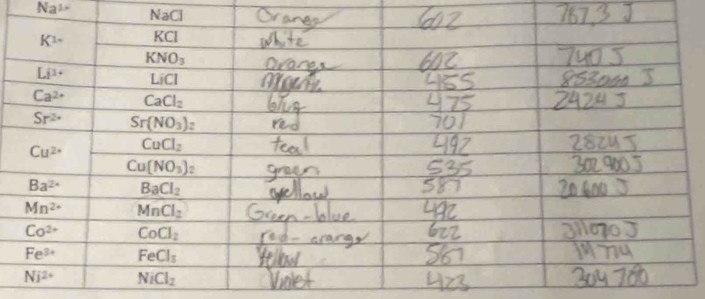 Na¹⁺ NaCl Orange 602 787.3 J
K¹⁺ KCl white
KNO₃ orange 602 740 J
Li¹⁺ LiCl 455
Ca²⁺ CaCl₂ blue 475 2424 J
Sr²⁺ Sr(NO₃)₂ red 701
Cu²⁺ CuCl₂ teal 492 2824 J
Cu(NO₃)₂ green 535 302900 J
Ba²⁺ BaCl₂ yellow 587 20600 J
Mn²⁺ MnCl₂ Green-blue 492
Co²⁺ CoCl₂ red-orange 622
Fe³⁺ FeCl₃ Yellow 587
Ni²⁺ NiCl₂ Violet 423 304700